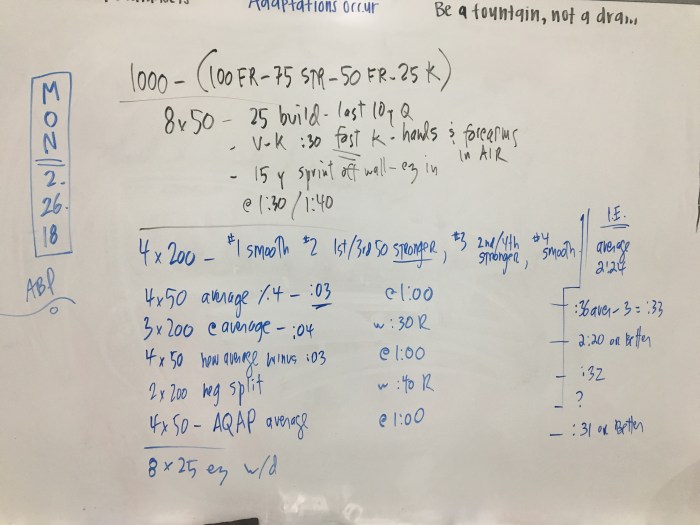 Adaptations Occur
Be a fountain, not a
MON 2.26.18
ABP
1000 - (100 FR - 75 STR - 50 FR - 25 K)
8x50 - 25 build - last 10y Q
- V-K :30 fast K - hands & forearms in AIR
- 15 y sprint off wall - ez in
@ 1:30 / 1:40
4 x 200 - #1 smooth #2 1st/3rd 50 stronger, #3 2nd/4th stronger, #4 smooth
4x50 average %4 - :03 @ 1:00
3x200 @ average - :04 w :30 R
4x50 new average minus :03 @ 1:00
2x200 neg split w :40 R
4x50 - AQAP average @ 1:00
8x25 ez w/d
I.E.
average
2:24
:36 aver - 3 = :33
2:20 or Better
:32
?
:31 or Better